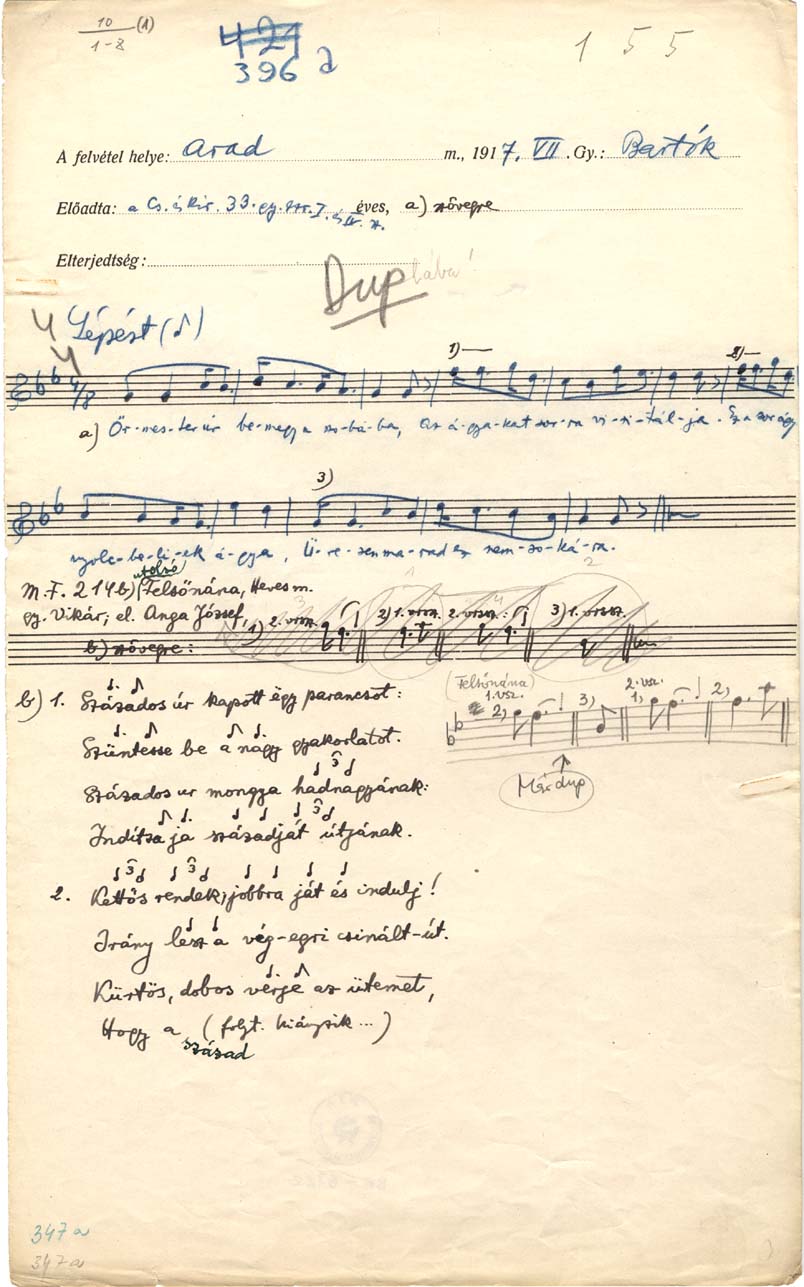 10 (1)
1-8
421
396 a
1 5 5
A felvétel helye: Arad m., 1917. VII. Gy.: Bartók
Előadta: a Cs. és Kir. 33. gy. ezr. I. és IV. z. éves, a) szövegre
Elterjedtség:
Duplába!
4
4
Lépést (♪)
4/8
1) 2)
a) Őr-mes-ter úr be-megy a szo-bá-ba, az á-gya-kat sor-ra vi-zi-tál-ja. Ez a sor ágy
3)
nyolc-be-li-ek á-gya, Ü-re-sen ma-rad ez nem-so-ká-ra.
M.F. 214b) utolsó Felsőnána, Heves m.
gy. Vikár; el. Anga József,
1) 2. versz. 2) 1. versz. 2. versz.: 3) 1. versz.
b) szövegre:
b) 1. Százados úr kapott ëgy parancsot:
Szüntesse be a nagy gyakorlatot.
Százados ur mongya hadnagyának:
Indítsa ja századját útjának.
(Felsőnána)
1. vsz. 2. vsz.
2) 3) 1) 2)
Már dup
2. Kettős rendek, jobbra ját és indulj!
Irány lësz a vég-egri csinált-út.
Kürtös, dobos verje az ütemet,
Hogy a század (folyt. hiányzik ...)
347a
347a